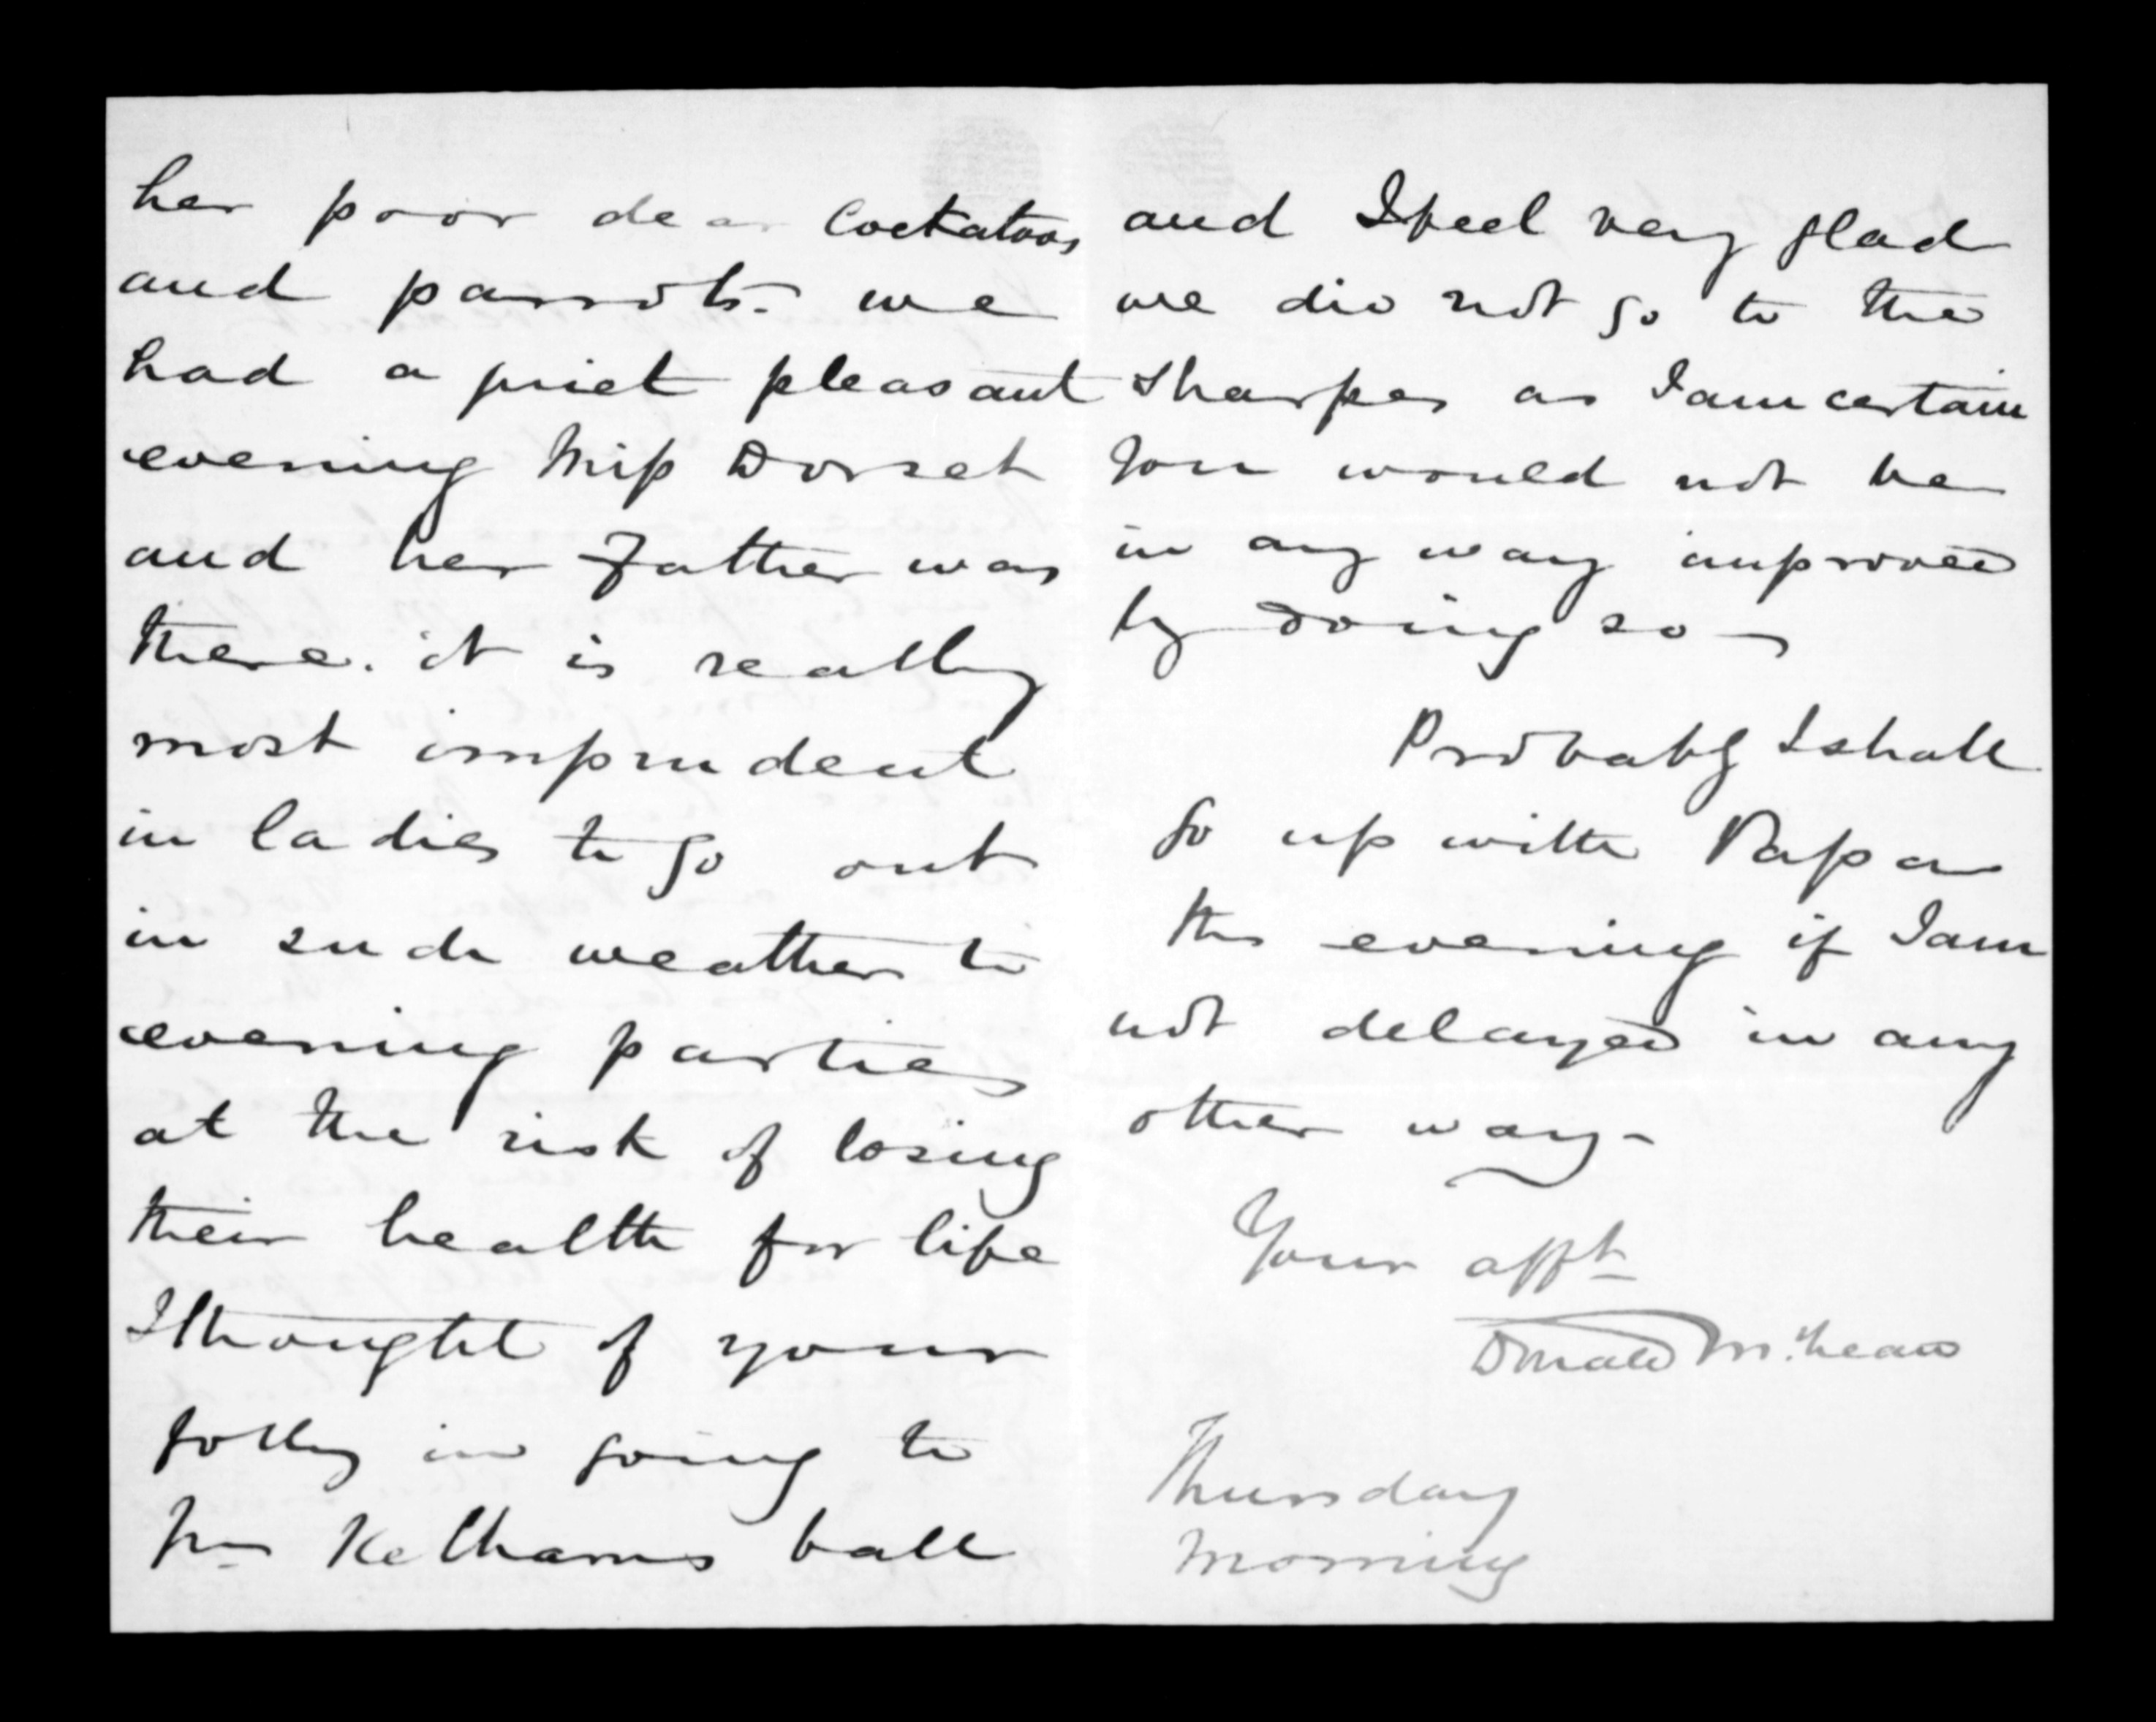 her poor dear Cockatoos
and parrots. we
had a quiet pleasant
evening Miss Dorset
and her Father was
there. it is really
most imprudent
in ladies to go out
in such weather to
evening parties
at the risk of losing
their health for life
I thought of your
folly in going to
Mrs Kelhams ball
and I feel very glad
we did not go to the
Sharpes as I am certain
you would not be
in any way improved
by doing so
Probably I shall
go up with Papa
this evening if I am
not delayed in any
other way -
Your afft
Donald McLean
Thursday
Morning